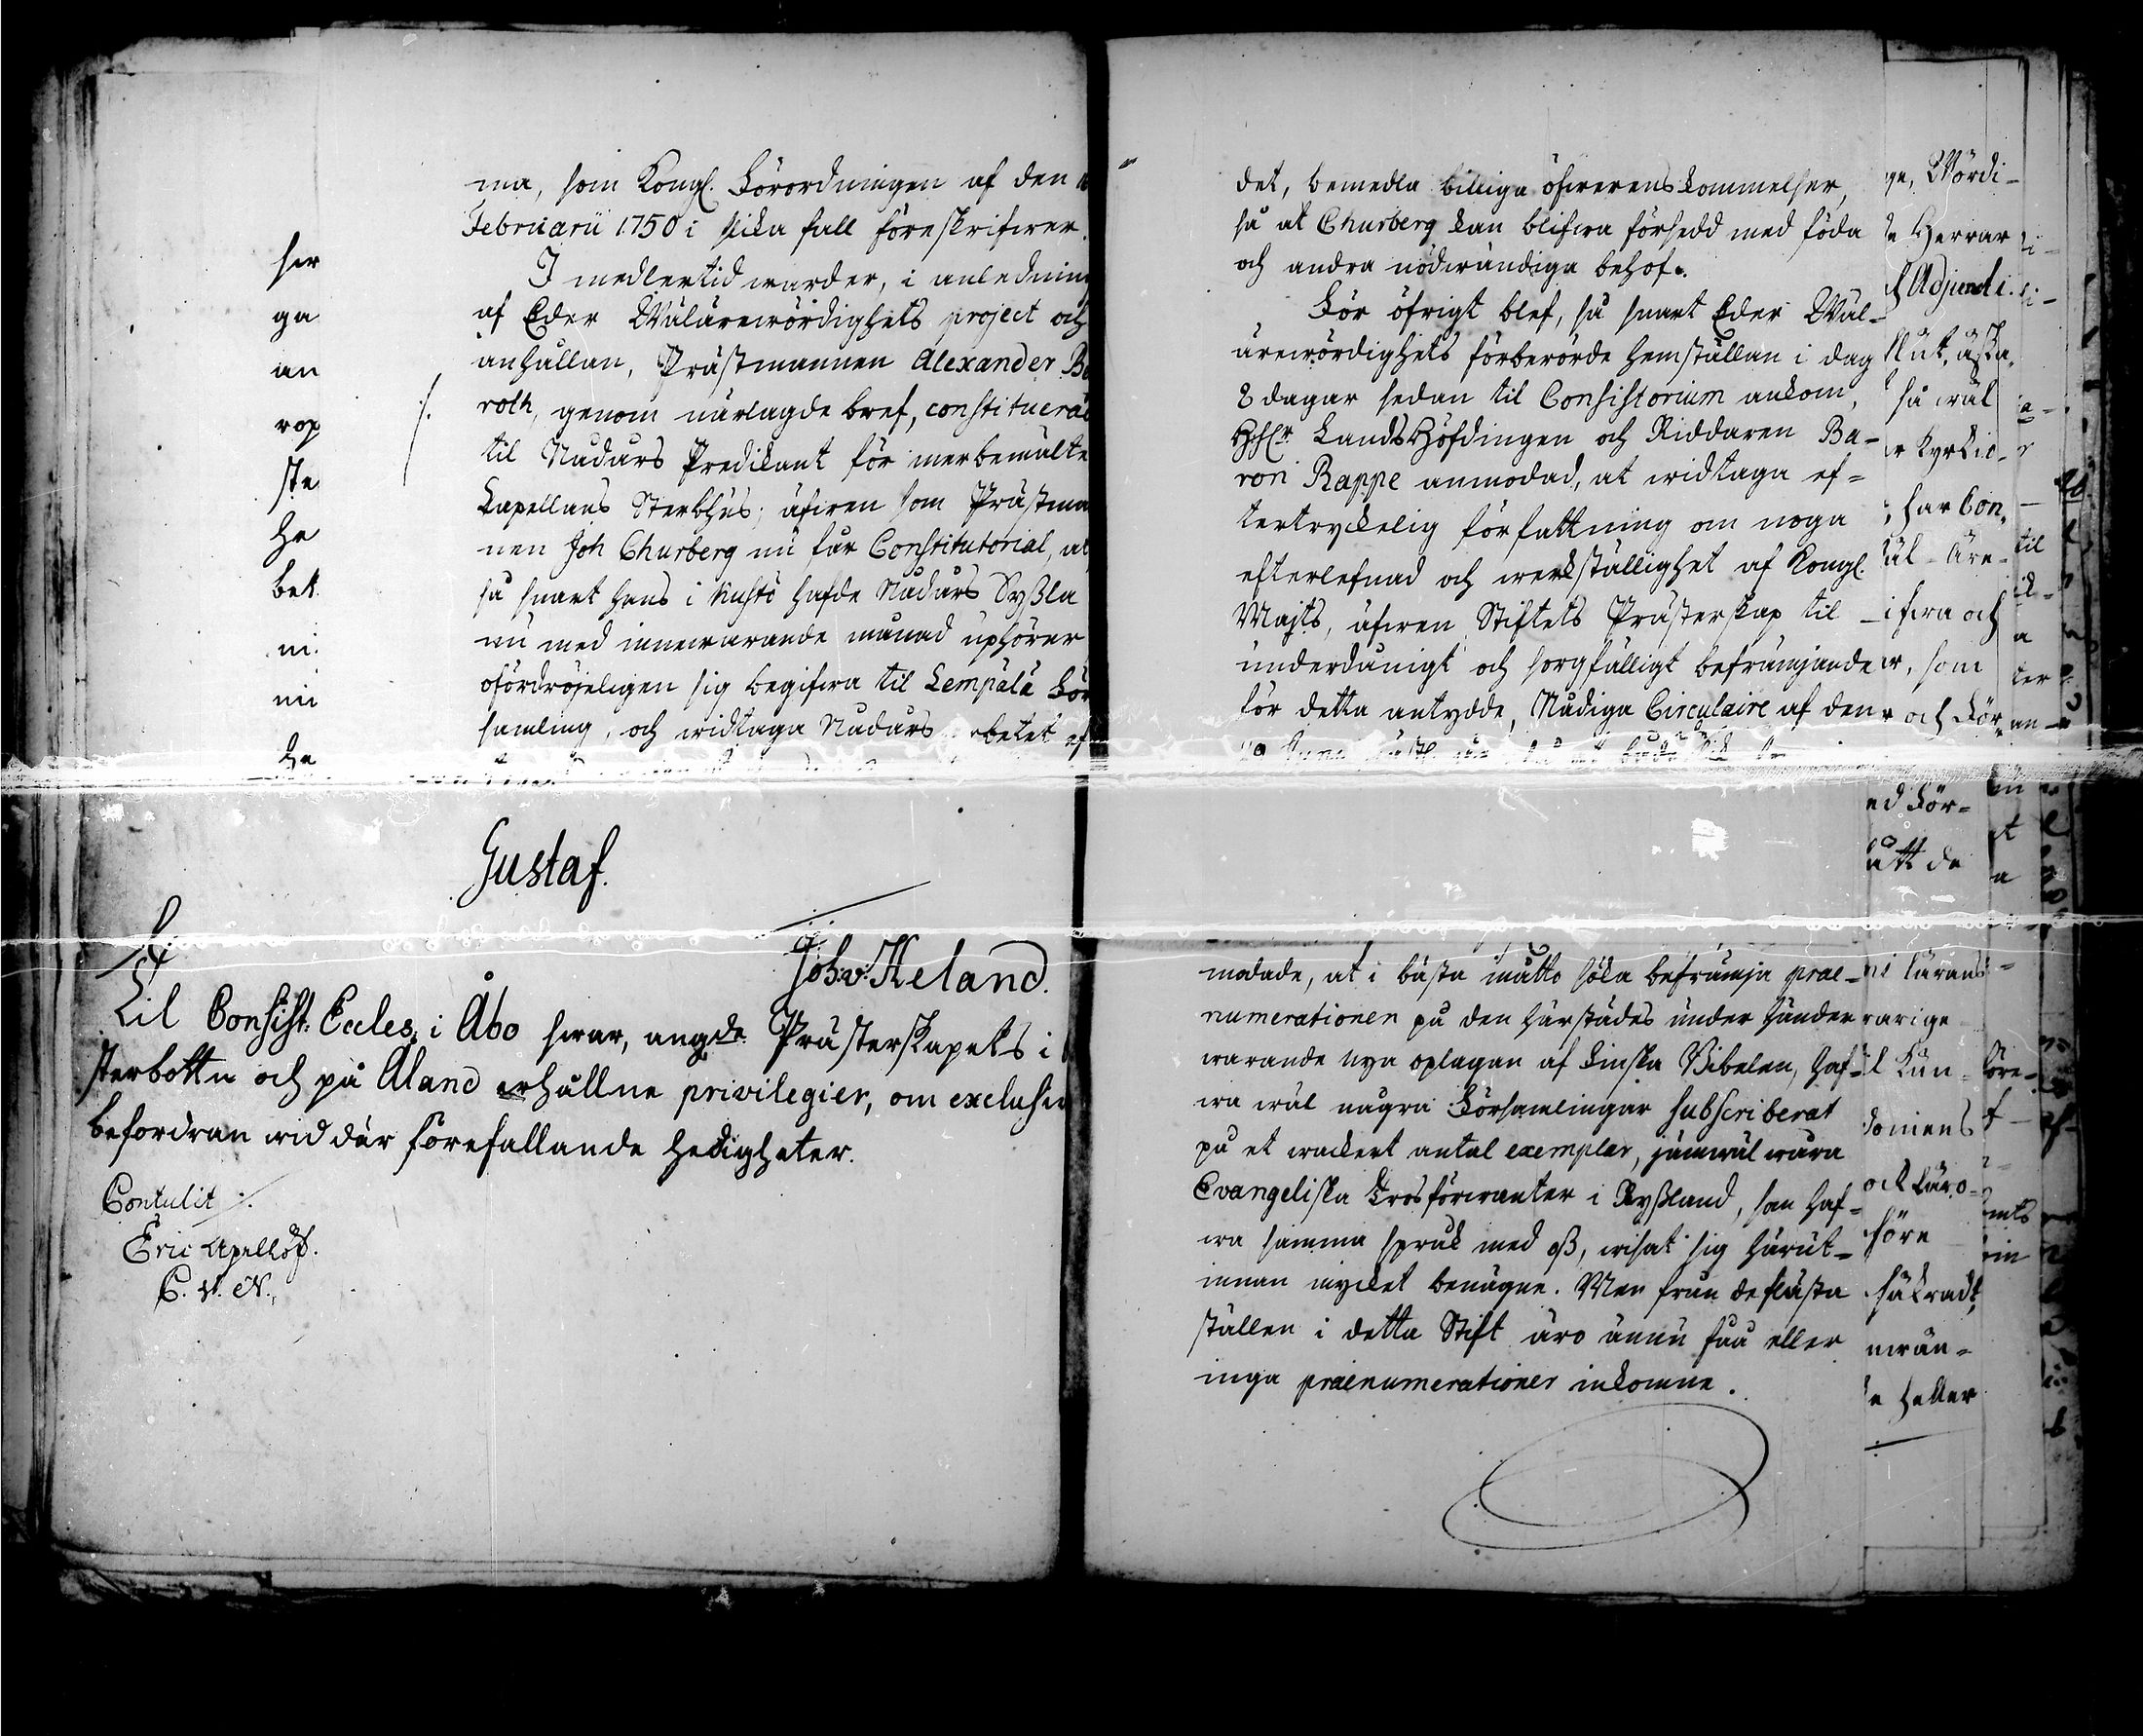 ma, som Kongl. Förordningen af den
Februarii 1750 i slika fall föreskrifwer.
I medlertid warder, i anledning
af Eder Wälärewördighets project och
anhållan, Prästmannen Alexander
roth, genom närlagde bref, constituerad
til Nådårs Predikant för merbemälte
Capellans Sterbhus; äfwen som Prästman
nen Joh Churberg nu får Constitutorial, at
så snart hans i Kustö hafde Nådårs Syßla
nu med innewarande månad uphörer
ofördröjeligen sig begifwa til Lempälä För
samling, och widtaga Nådårs arbetet
swa
ga
an
rop
ste
he
bet
ni
nu
ha
Gustaf.
Joh: v: Heland.
Til Consist: Eccles: i Åbo swar, ang:de Prästerskapets i
sterbottn och på Åland erhållne privilegier, om exclusiv
befordran wid där förefallande ledigheter.
Contulit
Eric Apelhöf.
C. V. N.
det, bemedla billiga öfwerenskommelser,
så at Churberg kan blifwa försedd med föda
och andra nödwändiga behof.
För öfrigt blef, så snart Eder Wäl-
ärewördighets förberörde hemställan i dag
8 dagar sedan til Consistorium ankom,
LandsHöfdingen och Riddaren Ba-
ron Rappe anmodad, at widtaga ef-
tertryckelig författning om noga
efterlefnad och werkställighet af Kongl.
Majts, äfwen Stiftets Prästerskap til
underdånigt och sorgfälligt befrämjande
för detta antydde, Nådiga Circulaire af den
modade, at i bästa måtto söka befrämja prae-
numerationen på den härstädes under händer
warande nya oplagan af Finska Bibelen, haf-
wa wäl några Församlingar subscriberat
på et wackert antal exemplar, jämwäl wåra
Evangeliska Trosförwanter i Ryßland, som haf-
wa samma språk med oß, wisat sig härut-
innan mycket benägne. Men från de flästa
ställen i detta Stift äro ännu fåå eller
inga praenumerationer inkomne.
ge, Wördi-
Herrar
Adjuncti
så wäl
Kyrkio-
har Con
Äre-
ifwa och
som
och För
ed För-
ått de
lärans
rarige
Kun-
domens
och läro-
före
säkradt,
nwän-
heller
til
a
ter
an